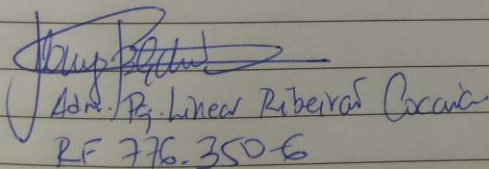 Adm. Pq. Linear Ribeirão Cocaia
RF 776.350-6